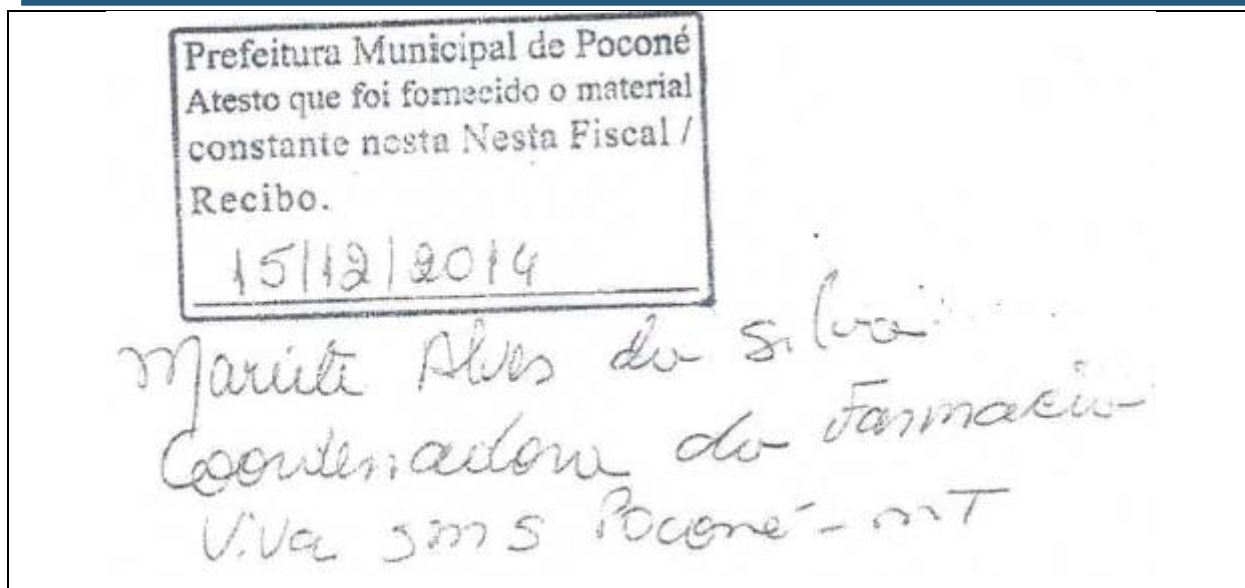 Prefeitura Municipal de Poconé
Atesto que foi fornecido o material
constante nesta Nesta Fiscal /
Recibo.
15/12/2014
Alves da Silva
Coordenadora da Farmacia
Viva SMS Poconé - MT